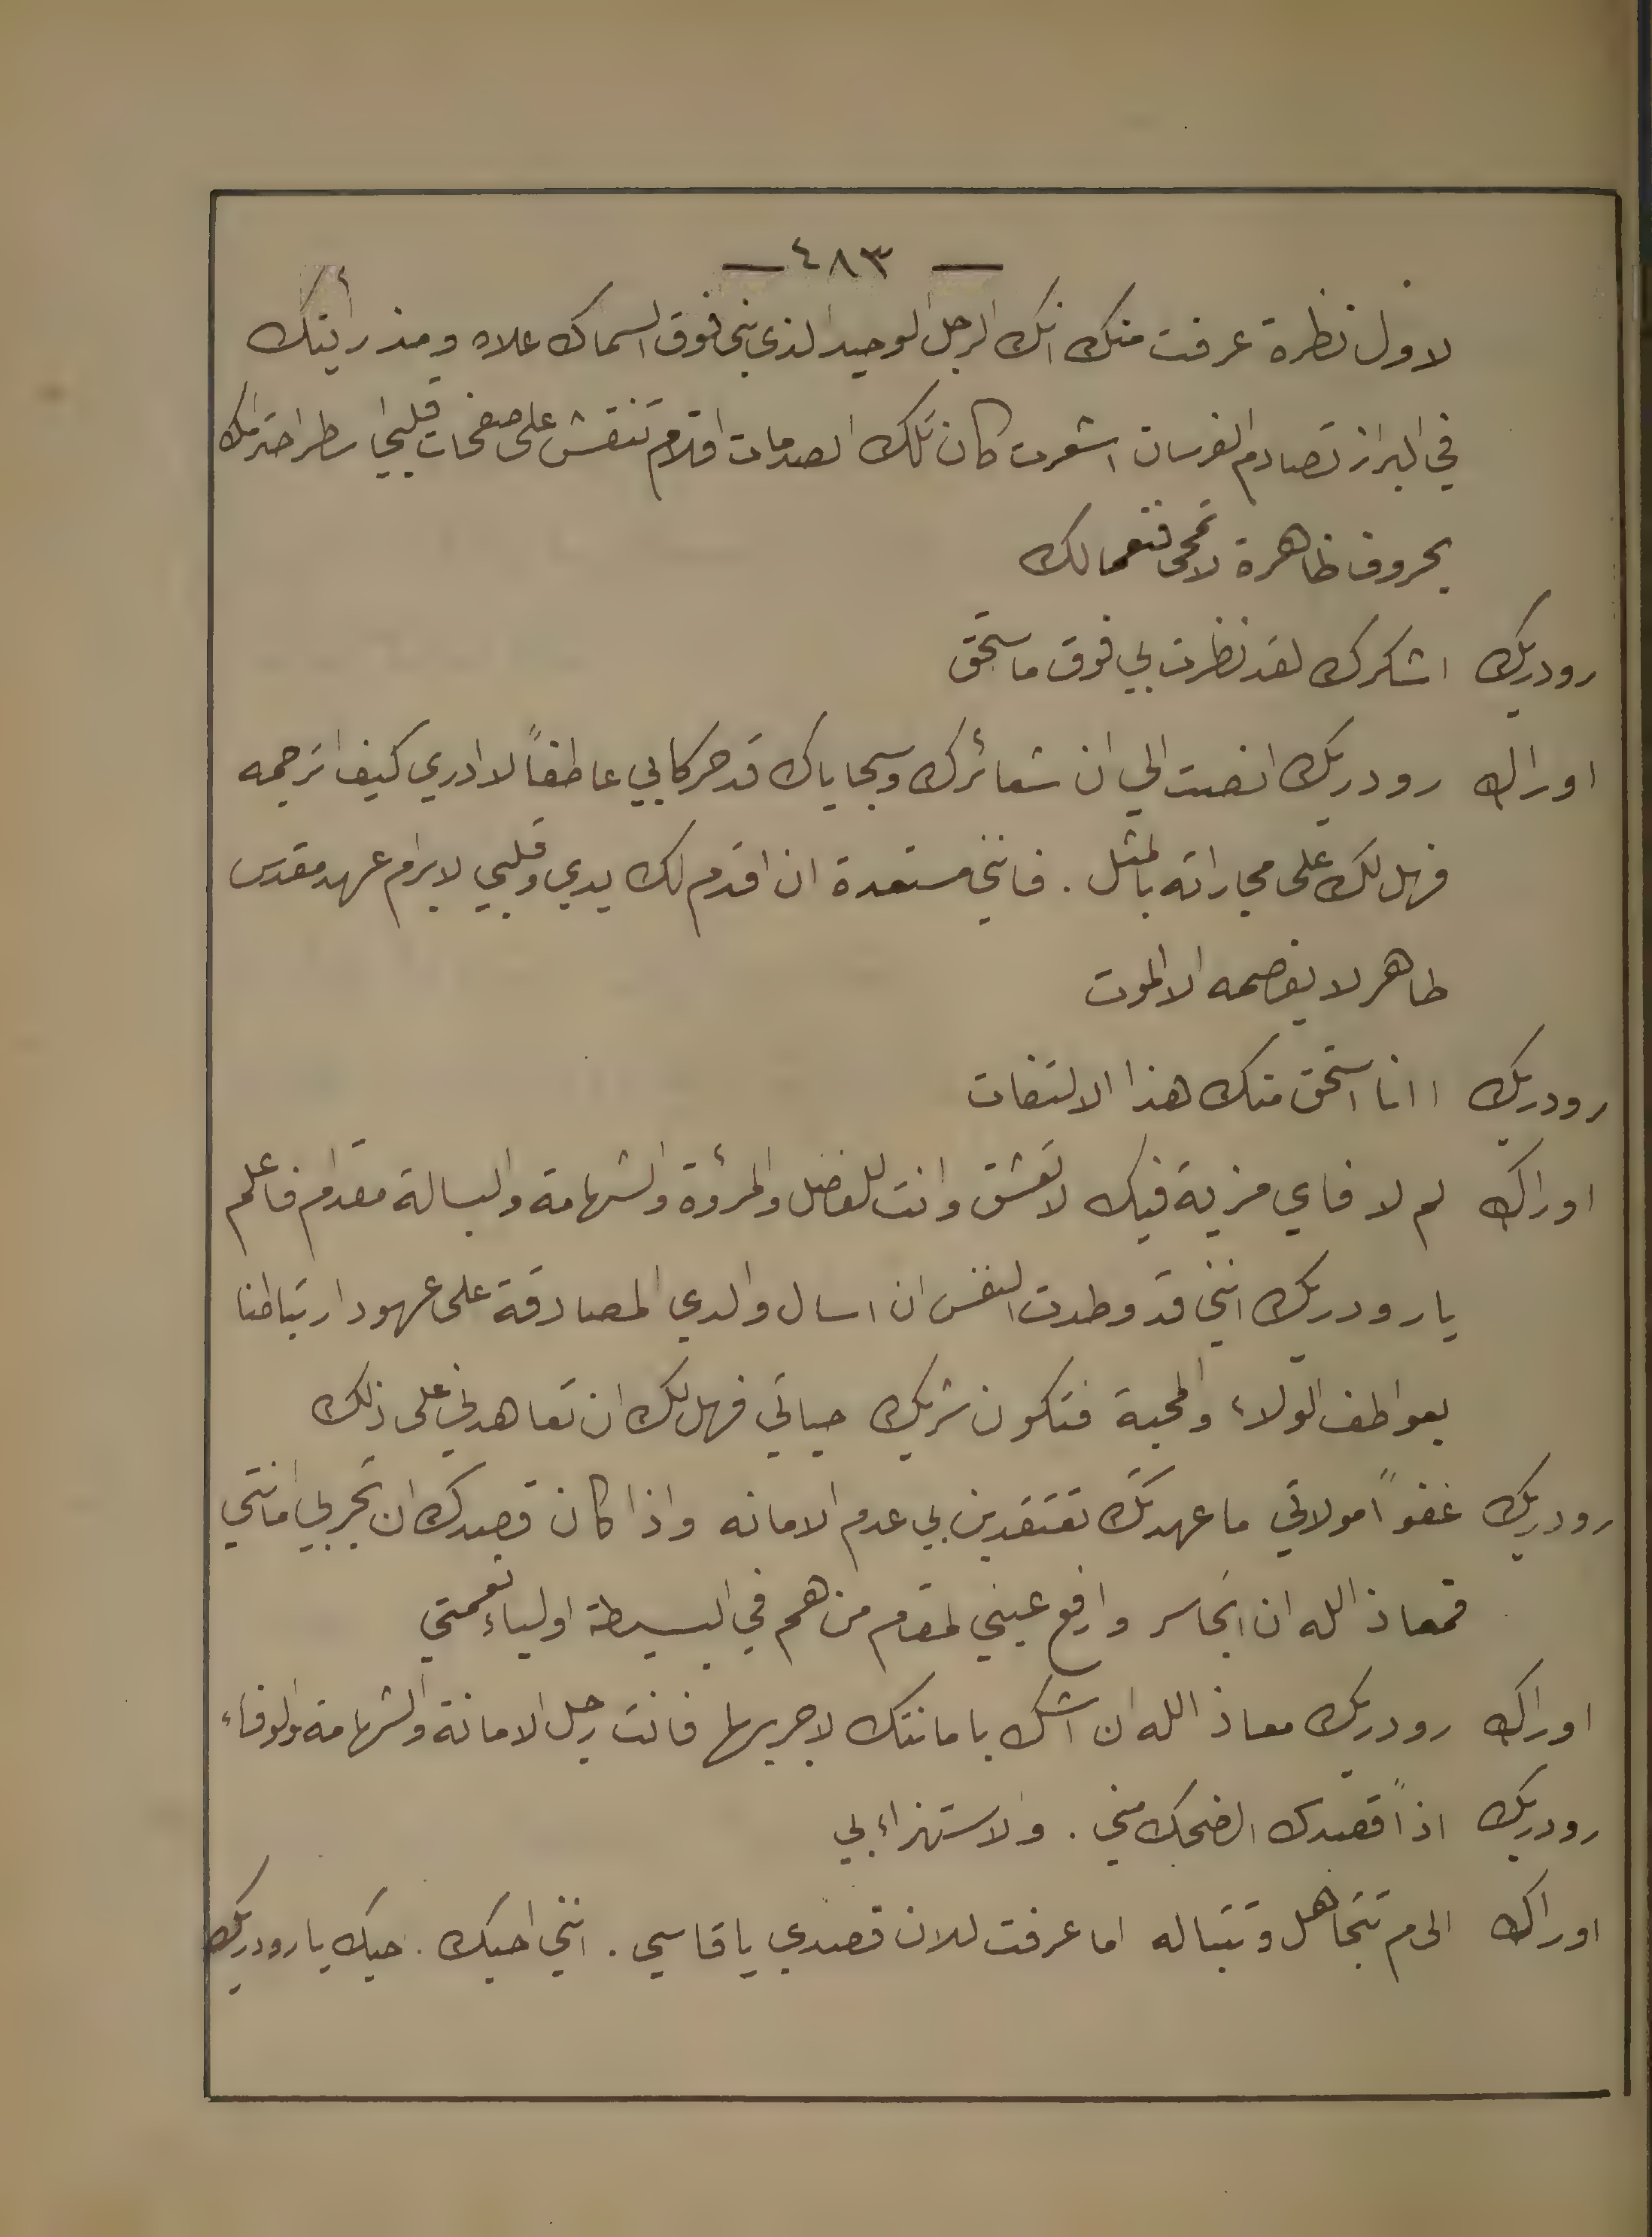 — ٤٨٣ —
لاول نظرة عرفت منك انك الرجل الوحيد الذي بنى فوق السماك علاه ومذ رأيتك
في البراز تصادم الفرسان اشعرت كان تلك الصدمات اقلام تنقش على صفحات قلبي اسطر احترامك
بحروف ظاهرة لا تمحى فنعما لك
رودريك اشكرك لقد نظرت بي فوق ما استحق
اوراك رودريك انصت الي ان شعائرك وسجاياك قد حركا بي عاطفاً لا ادري كيف اترجمه
فهل لك على مجاراته بالمثل . فانني مستعدة ان اقدم لك يدي وقلبي لابرام عهد مقدس
طاهر لا يفصمه الا الموت
رودريك اانا استحق منك هذا الالتفات
اوراك لم لا فاي مزية فيك لا تعشق وانت للفضل والمرؤة والشهامة والبسالة مقدام فاعلم
يا رودريك انني قد وطدت النفس ان اسال والدي المصادقة على عهود ارتباطنا
بعواطف الولاء والمحبة فتكون شريك حياتي فهل لك ان تعاهدني على ذلك
رودريك عفواً مولاتي ما عهدتك تعتقدين بي عدم الامانه واذا كان قصدك ان تجربي امانتي
فمعاذ الله ان اتجاسر وارفع عيني لمقام من هم في البسيطة اولياء نعمتي
اوراك رودريك معاذ الله ان اشك بامانتك لاجربها فانت رجل الامانة والشهامة والوفاء
رودريك اذاً قصدك الضحك مني . والاستهزاء بي
اوراك الى م تتجاهل وتتباله اما عرفت للان قصدي يا قاسي . انني احبك . حبك يا رودريك